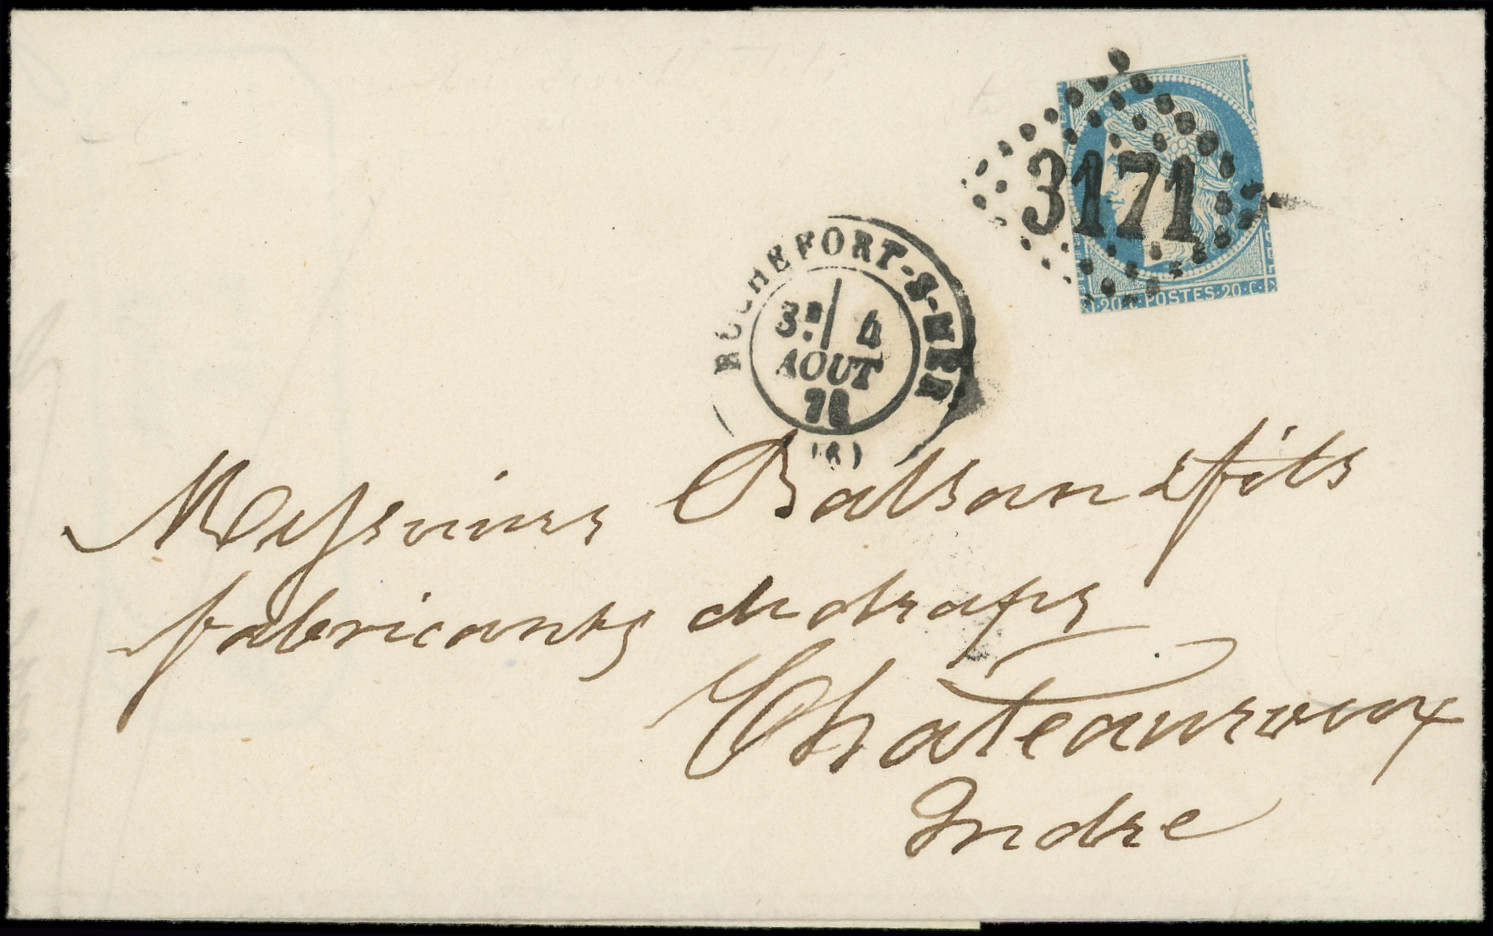 3171
20·C·POSTES·20·C·
ROCHEFORT-S-MER
3E 4
AOUT
(6)
Messieurs Balsan & fils
fabricants de draps
Châteauroux
Indre